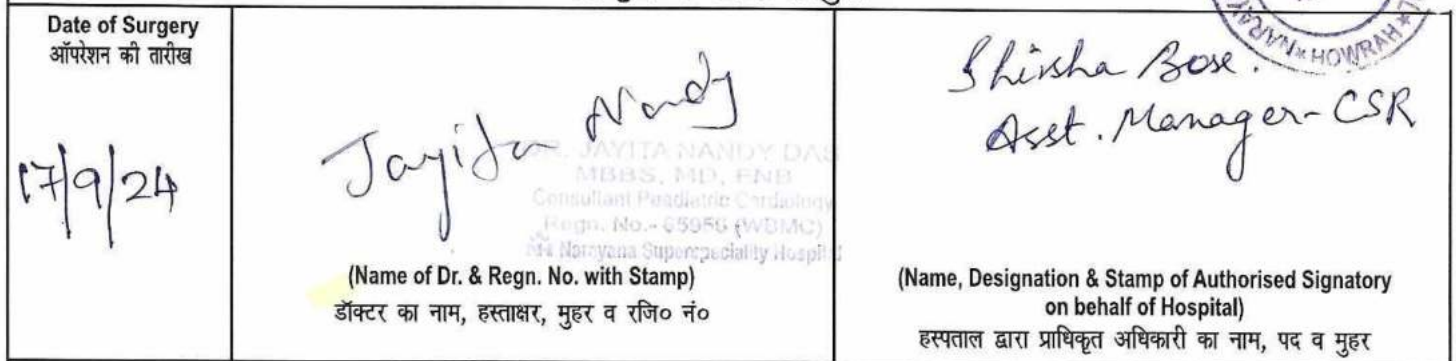 Date of Surgery
ऑपरेशन की तारीख
17/9/24
Jayita Nandy
DR. JAYITA NANDY DAS
MBBS, MD, FNB
Consultant Peadiatric Cardiology
Regn. No.- 65956 (WBMC)
Narayana Superspeciality Hospital
(Name of Dr. & Regn. No. with Stamp)
डॉक्टर का नाम, हस्ताक्षर, मुहर व रजि० नं०
HOWRAH
Shirsha Bose.
Asst. Manager-CSR
(Name, Designation & Stamp of Authorised Signatory
on behalf of Hospital)
हस्पताल द्वारा प्राधिकृत अधिकारी का नाम, पद व मुहर